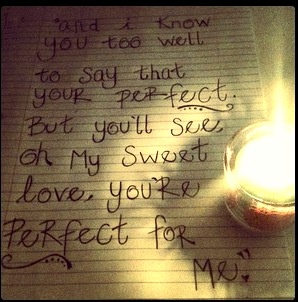 "and i know
you too well
to say that
your perfect.
But you'll see,
oh my sweet
love, you're
Perfect for
Me."